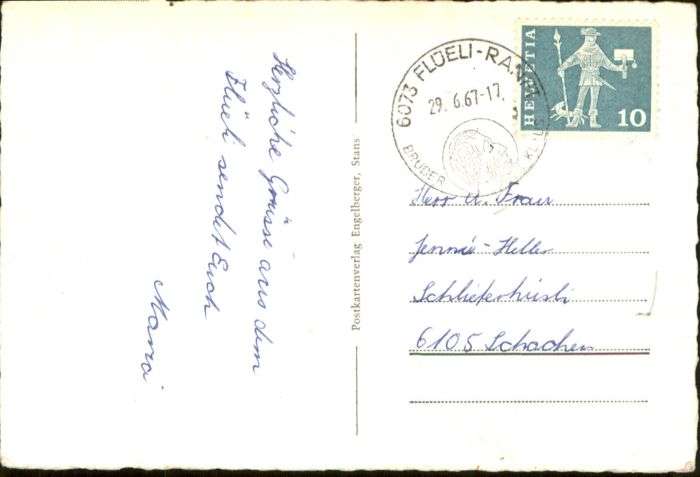 Herzliche Grüsse aus dem
Flüeli sendet Euch
Postkartenverlag Engelberger, Stans
6073 FLÜELI-RANFT
29. 6.67-17
BRUDER KLAUS
HELVETIA
10
Herr u. Frau
Jenni-Heller
6105 Schachen